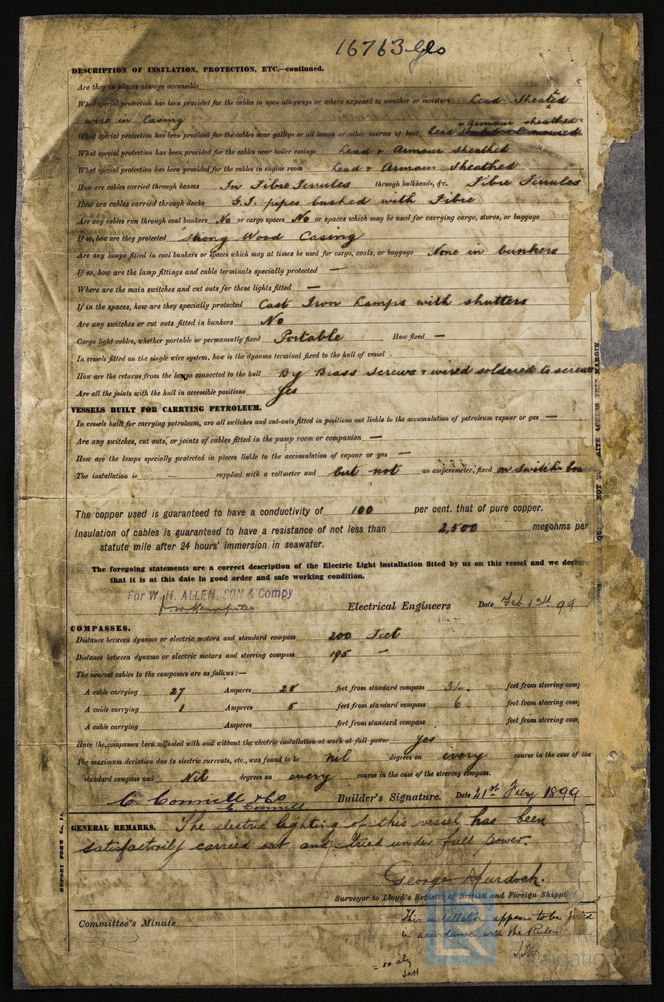 16763 Gls
DESCRIPTION OF INSULATION, PROTECTION, ETC.—continued.
Are they in places always accessible
What special protection has been provided for the cables in open alleyways or where exposed to weather or moisture Lead Sheated
wire in Casing
What special protection has been provided for the cables near galleys or oil lamps or other sources of heat Lead + armour sheathed
What special protection has been provided for the cables near boiler casings Lead + Armour Sheathed
What special protection has been provided for the cables in engine room Lead + Armour Sheathed
How are cables carried through beams In Fibre Ferrules through bulkheads, &c. Fibre Ferrules
How are cables carried through decks G.I. pipes bushed with Fibre
Are any cables run through coal bunkers No or cargo spaces No or spaces which may be used for carrying cargo, stores, or baggage
If so, how are they protected Strong Wood Casing
Are any lamps fitted in coal bunkers or spaces which may at times be used for cargo, coals, or baggage None in bunkers
If so, how are the lamp fittings and cable terminals specially protected —
Where are the main switches and cut outs for these lights fitted —
If in the spaces, how are they specially protected Cast Iron Lamps with shutters
Are any switches or cut outs fitted in bunkers No
Cargo light cables, whether portable or permanently fixed Portable How fixed —
In vessels fitted on the single wire system, how is the dynamo terminal fixed to the hull of vessel
How are the returns from the lamps connected to the hull By Brass Screws + wired soldered to screws
Are all the joints with the hull in accessible positions Yes
VESSELS BUILT FOR CARRYING PETROLEUM.
In vessels built for carrying petroleum, are all switches and cut-outs fitted in positions not liable to the accumulation of petroleum vapour or gas —
Are any switches, cut outs, or joints of cables fitted in the pump room or companion —
How are the lamps specially protected in places liable to the accumulation of vapour or gas —
The installation is supplied with a voltmeter and but not an amperemeter, fixed on Switch boa
The copper used is guaranteed to have a conductivity of 100 per cent. that of pure copper.
Insulation of cables is guaranteed to have a resistance of not less than 2,500 megohms per
statute mile after 24 hours' immersion in seawater.
The foregoing statements are a correct description of the Electric Light installation fitted by us on this vessel and we decla
that it is at this date in good order and safe working condition.
For W. H. ALLEN, SON & Compy
Electrical Engineers Date Feb 99
COMPASSES.
Distance between dynamo or electric motors and standard compass 200 feet
Distance between dynamo or electric motors and steering compass 195 "
The nearest cables to the compasses are as follows:—
A cable carrying 27 Amperes 28 feet from standard compass feet from steering com
A cable carrying 1 Amperes 5 feet from standard compass 6 feet from steering com
A cable carrying Amperes feet from standard compass feet from steering com
Have the compasses been adjusted with and without the electric installation at work at full power Yes
The maximum deviation due to electric currents, etc., was found to be nil degrees on every course in the case of the
standard compass and Nil degrees on every course in the case of the steering compass.
C. Connell & Co
C. Connell Builder's Signature. Date 21st Feby 1899
GENERAL REMARKS. The electric lighting of this vessel has been
satisfactorily carried out and tried under full power.
George Murdoch.
Surveyor to Lloyd's Register of British and Foreign Shipp
Committee's Minute
This installation appears to be fitted
in accordance with the Rules
REPORT FORM